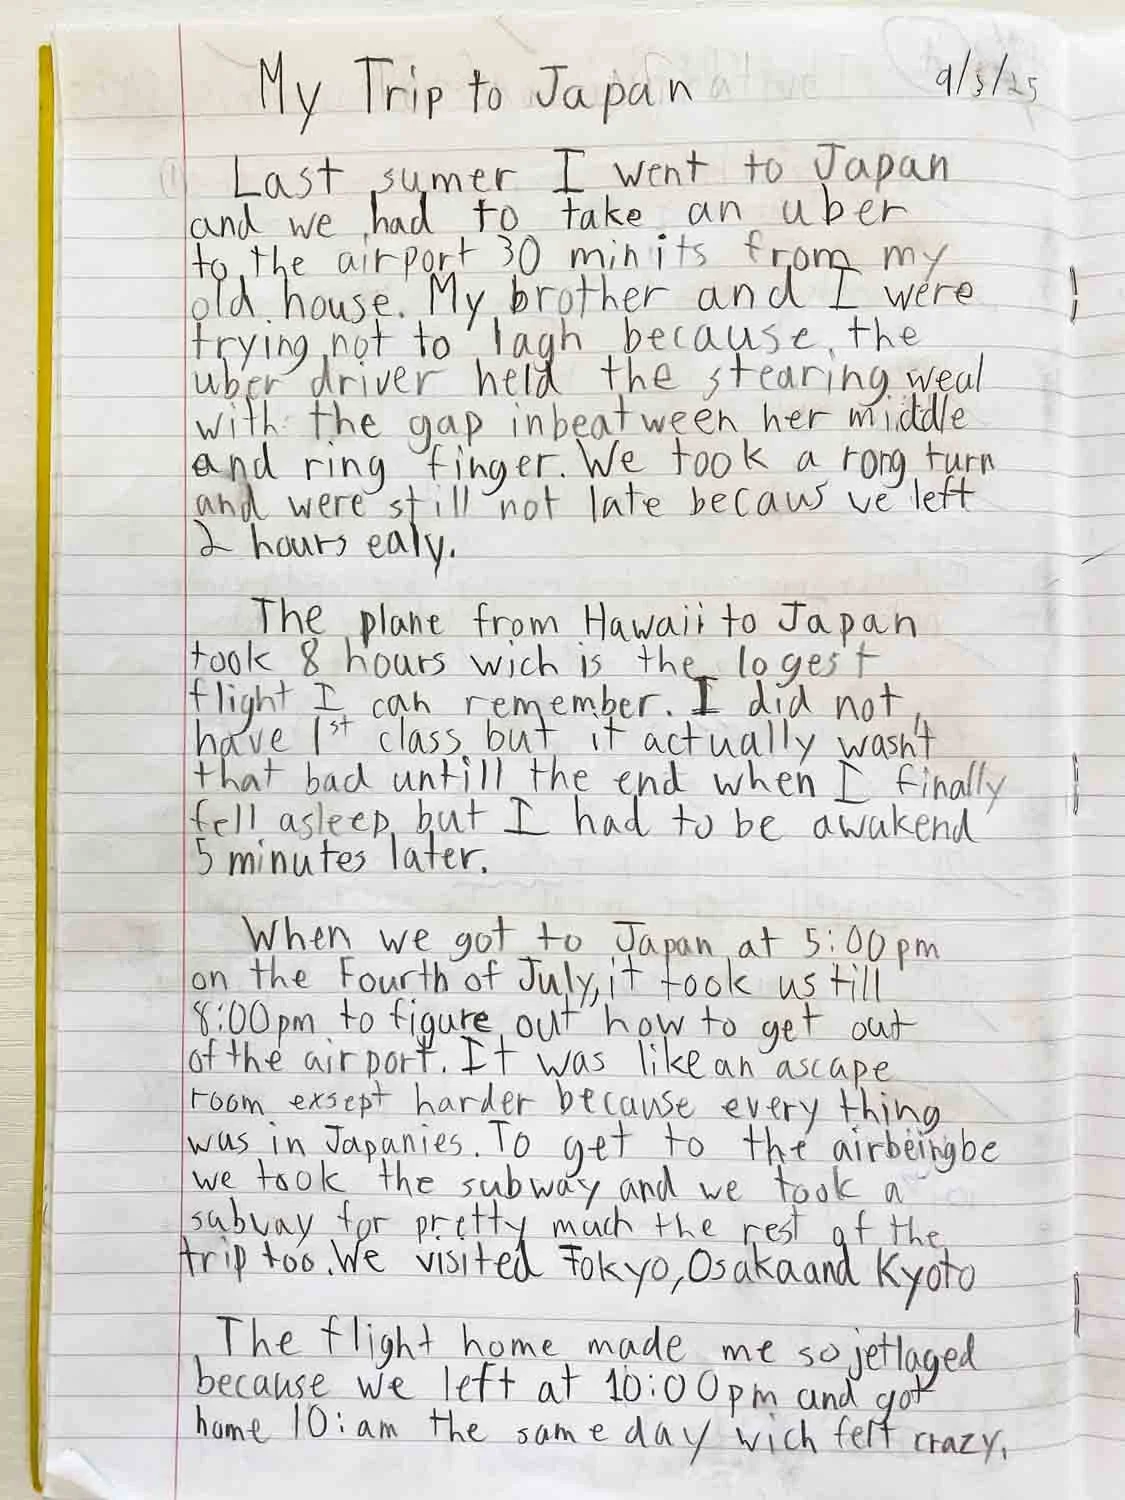 My Trip to Japan 9/3/25
Last sumer I went to Japan
and we had to take an uber
to the airport 30 minits from my
old house. My brother and I were
trying not to lagh because the
uber driver held the stearing weal
with the gap inbeatween her middle
and ring finger. We took a rong turn
and were still not late becaus ve left
2 hours ealy.
The plane from Hawaii to Japan
took 8 hours wich is the logest
flight I can remember. I did not
have 1st class but it actually wasn't
that bad untill the end when I finally
fell asleep but I had to be awakend
5 minutes later.
When we got to Japan at 5:00pm
on the Fourth of July, it took us till
8:00pm to figure out how to get out
of the airport. It was like an ascape
room exsept harder because every thing
was in Japanies. To get to the airbeingbe
we took the subway and we took a
subvay for pretty much the rest of the
trip too. We visited Tokyo, Osaka and Kyoto
The flight home made me so jetlaged
because we left at 10:00pm and got
home 10:am the same day wich felt crazy.